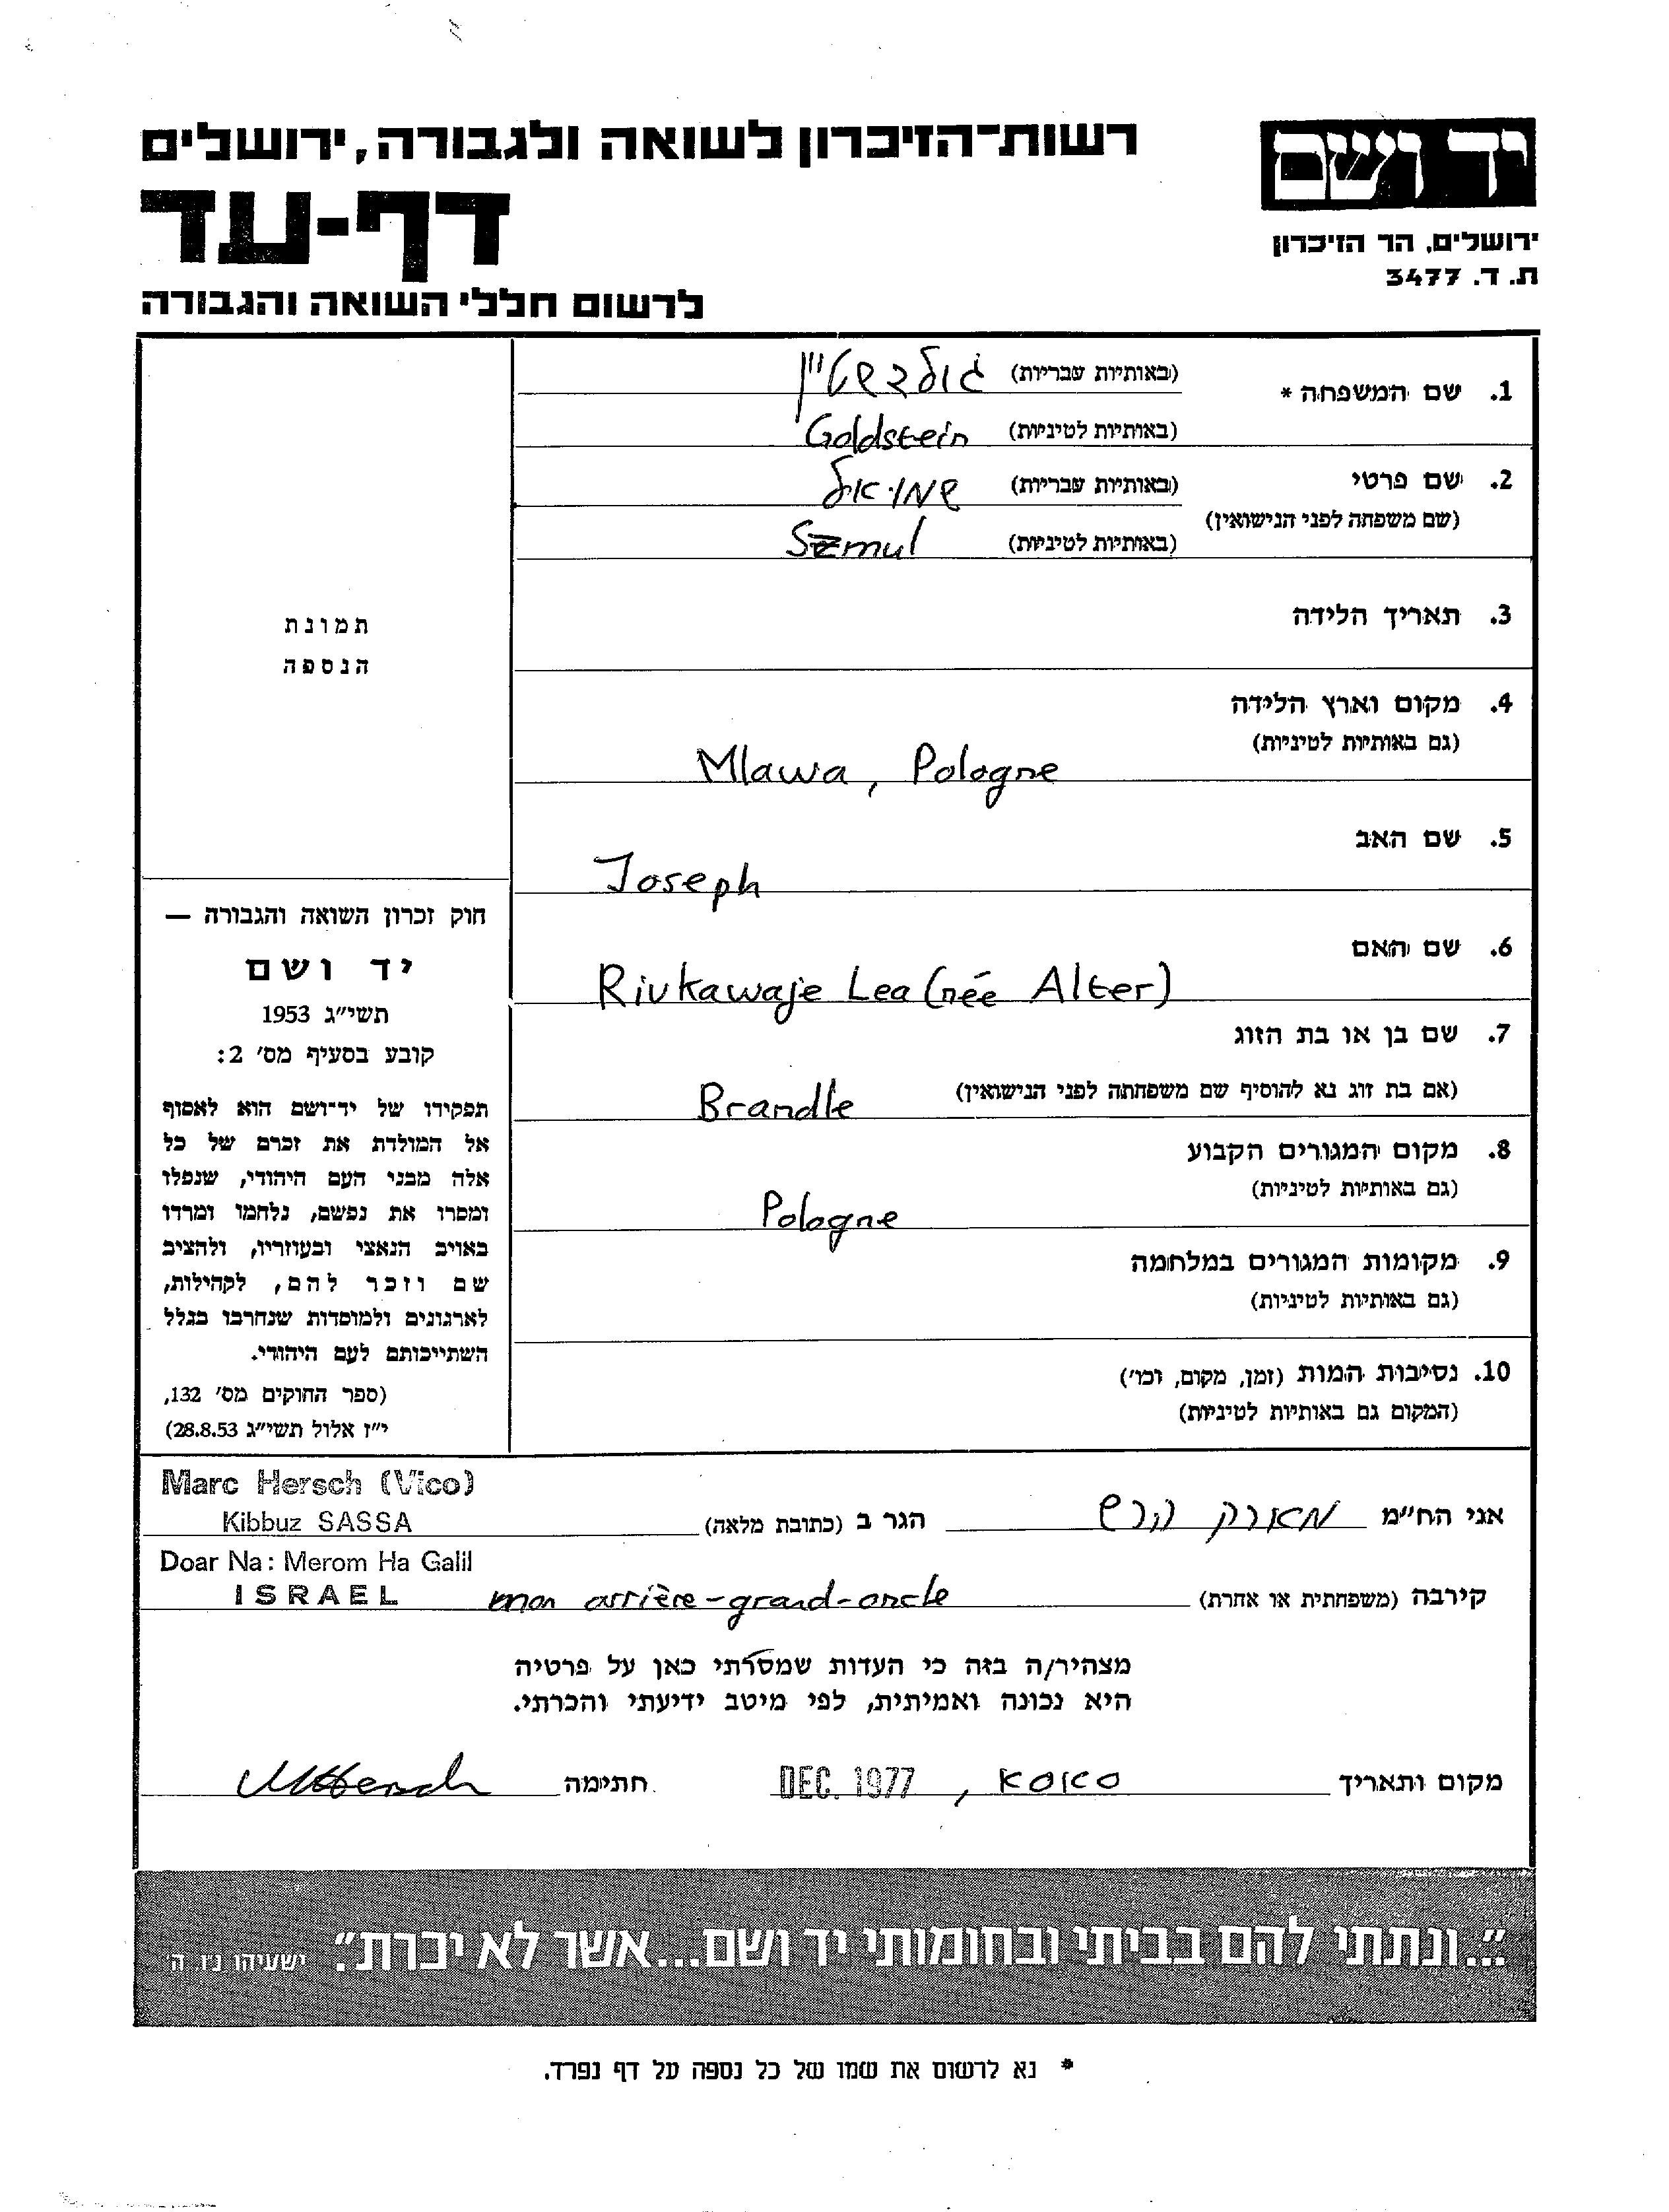 יד ושם
ירושלים, הר הזיכרון
ת.ד. 3477
רשות־הזיכרון לשואה ולגבורה, ירושלים
דף-עד
לרשום חללי השואה והגבורה
1. שם המשפחה *
(באותיות עבריות) גולדשטיין
(באותיות לטיניות) Goldstein
2. שם פרטי
(שם משפחה לפני הנישואין)
(באותיות עבריות) שמואל
(באותיות לטיניות) Szmul
3. תאריך הלידה
4. מקום וארץ הלידה
(גם באותיות לטיניות)
Mlawa, Pologne
5. שם האב
Joseph
6. שם האם
Rivkawaje Lea (née Alter)
7. שם בן או בת הזוג
(אם בת זוג נא להוסיף שם משפחתה לפני הנישואין) Brandle
8. מקום המגורים הקבוע
(גם באותיות לטיניות)
Pologne
9. מקומות המגורים במלחמה
(גם באותיות לטיניות)
10. נסיבות המות (זמן, מקום, וכו')
(המקום גם באותיות לטיניות)
תמונת
הנספה
חוק זכרון השואה והגבורה —
יד ושם
תשי״ג 1953
קובע בסעיף מס' 2:
תפקידו של יד־ושם הוא לאסוף
אל המולדת את זכרם של כל
אלה מבני העם היהודי, שנפלו
ומסרו את נפשם, נלחמו ומרדו
באויב הנאצי ובעוזריו, ולהציב
שם וזכר להם, לקהילות,
לארגונים ולמוסדות שנחרבו בגלל
השתייכותם לעם היהודי.
(ספר החוקים מס' 132,
י״ז אלול תשי״ג 28.8.53)
אני הח״מ מארק הרש הגר ב (כתובת מלאה)
Marc Hersch (Vico)
Kibbuz SASSA
Doar Na: Merom Ha Galil
ISRAEL
קירבה (משפחתית או אחרת) mon arrière-grand-oncle
מצהיר/ה בזה כי העדות שמסרתי כאן על פרטיה
היא נכונה ואמיתית, לפי מיטב ידיעתי והכרתי.
מקום ותאריך סאסא, DEC. 1977 חתימה MHersch
"...ונתתי להם בביתי ובחומותי יד ושם...אשר לא יכרת". ישעיהו נ״ו, ה'
* נא לרשום את שמו של כל נספה על דף נפרד.